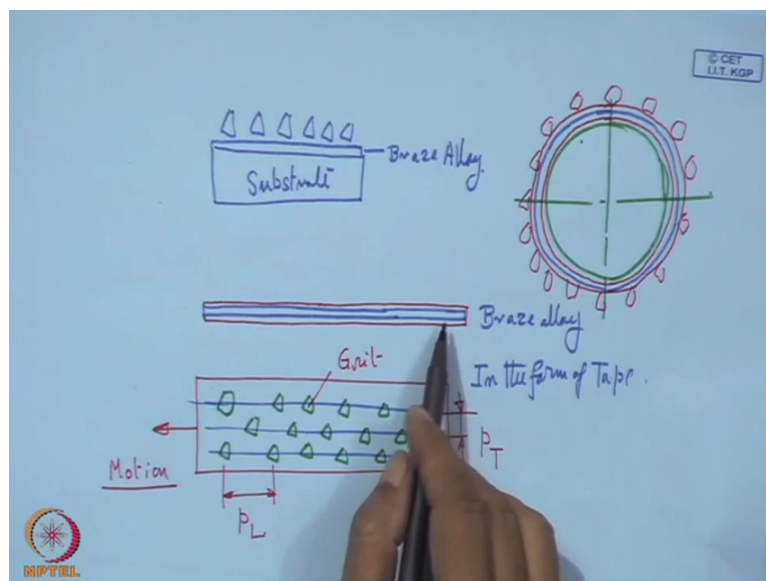 © CET
I.I.T. KGP
Braze Alloy.
Substrate
Braze alloy
Grit
In the form of Tape.
Motion
PT
PL
NPTEL